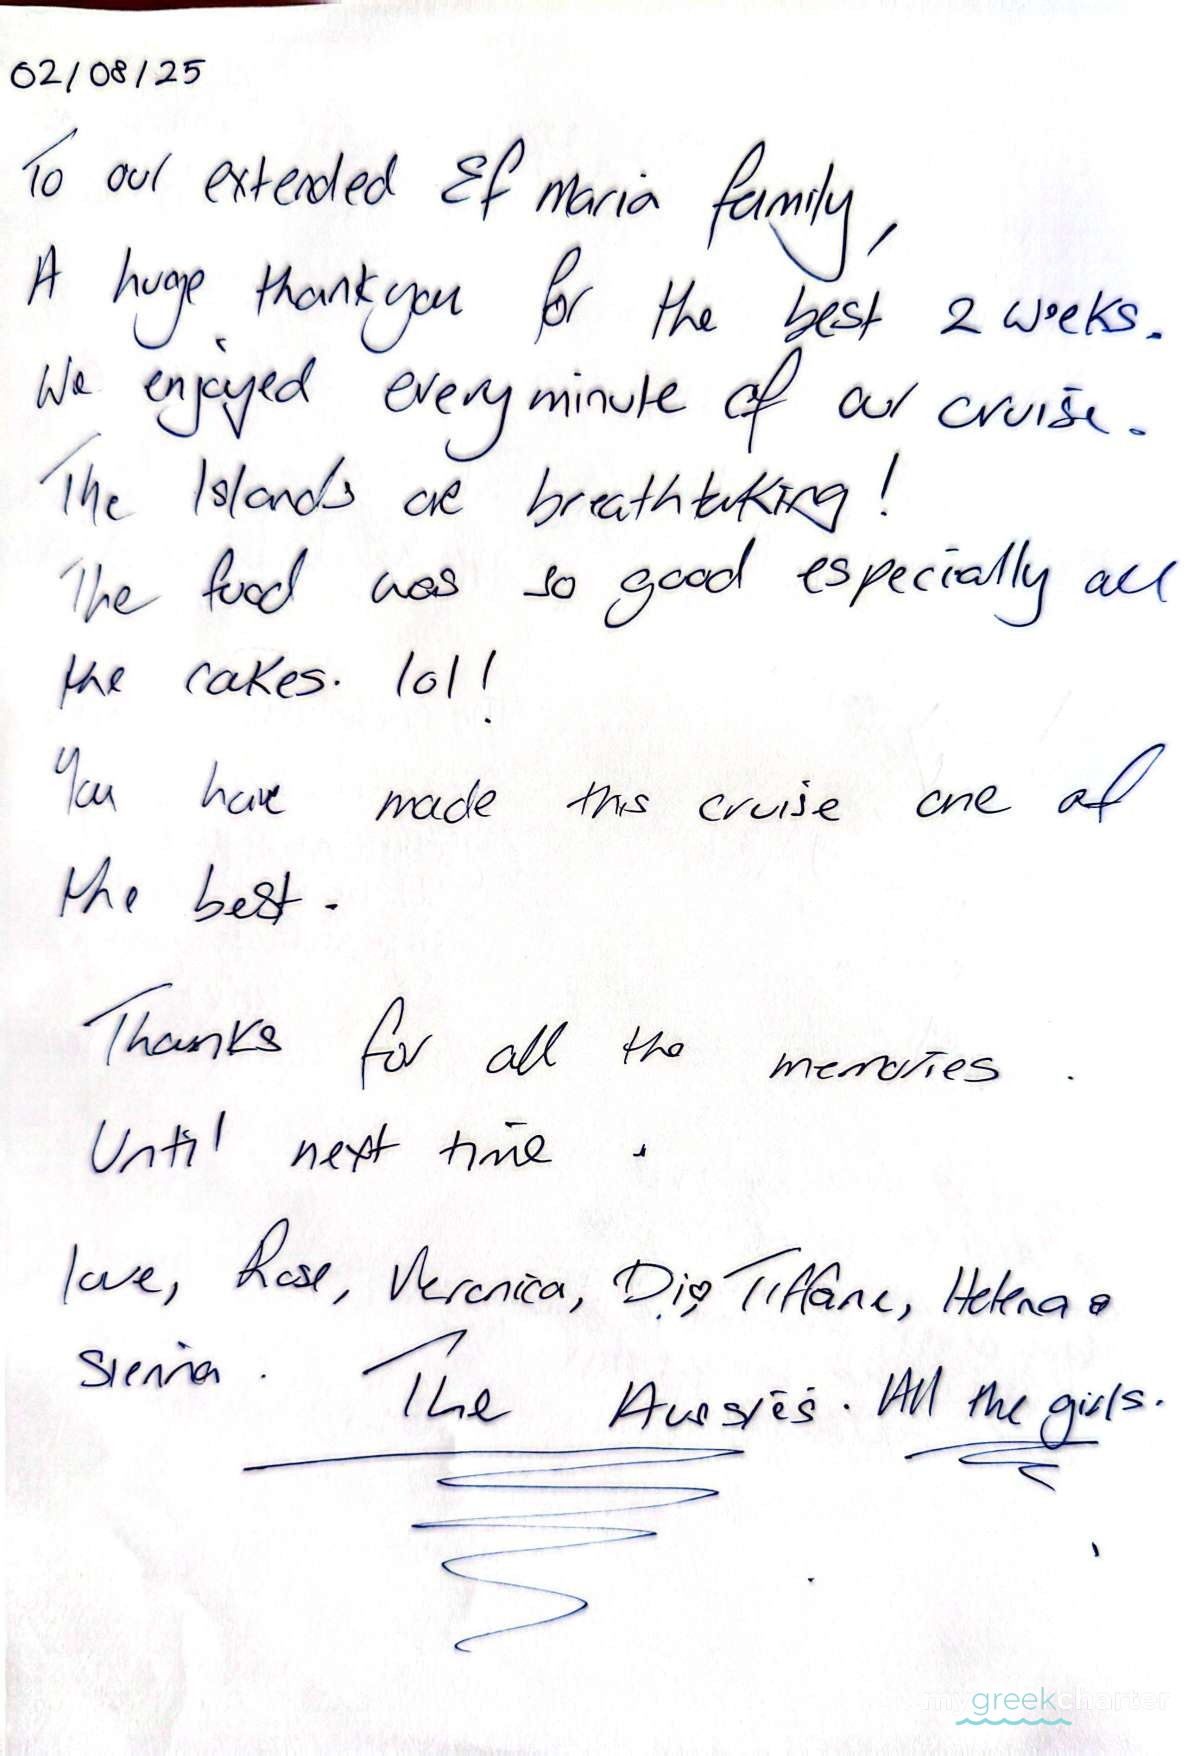 02/08/25
To our extended Ef Maria family,
A huge thankyou for the best 2 weeks.
We enjoyed every minute of our cruise.
The Islands are breathtaking!
The food was so good especially all
the cakes. lol!
You have made this cruise one of
the best.
Thanks for all the memories.
Until next time.
love, Rose, Veronica, Dio, Tiffane, Helena &
Sienna. The Aussies. All the girls.
mygreekcharter